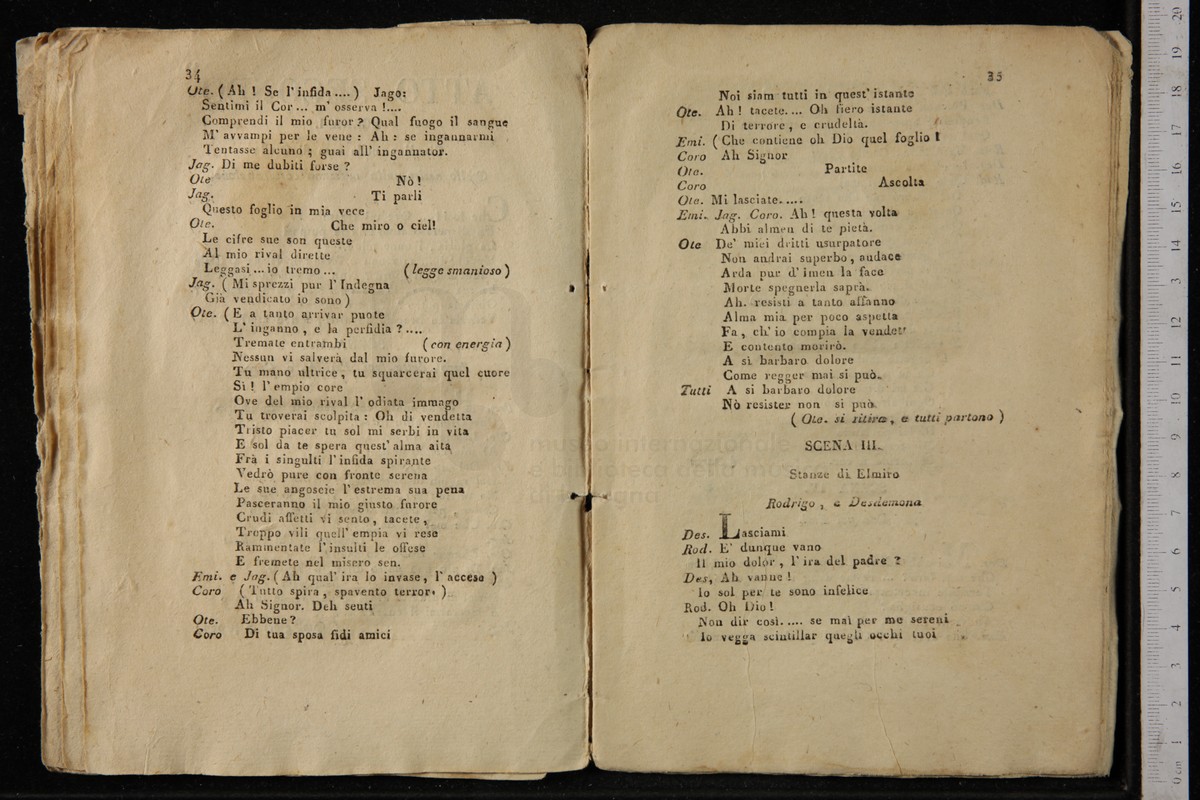 34
Ote. ( Ah ! Se l'infida .... ) Jago:
Sentimi il Cor ... m' osserva !....
Comprendi il mio furor ? Qual fuogo il sangue
M' avvampi per le vene : Ah : se ingannarmi
Tentasse alcuno ; guai all' ingannator.
Jag. Di me dubiti forse ?
Ote Nò !
Jag. Ti parli
Questo foglio in mia vece
Ote. Che miro o ciel!
Le cifre sue son queste
Al mio rival dirette
Leggasi ... io tremo ... ( legge smanioso )
Jag. ( Mi sprezzi pur l' Indegna
Già vendicato io sono )
Ote. ( E a tanto arrivar puote
L' inganno , e la perfidia ? ....
Tremate entrambi ( con energia )
Nessun vi salverà dal mio furore.
Tu mano ultrice , tu squarcerai quel cuore
Sì ! l' empio core
Ove del mio rival l' odiata immago
Tu troverai scolpita : Oh di vendetta
Tristo piacer tu sol mi serbi in vita
E sol da te spera quest' alma aita
Frà i singulti l'infida spirante
Vedrò pure con fronte serena
Le sue angoscie l' estrema sua pena
Pasceranno il mio giusto furore
Crudi affetti vi sento , tacete ,
Troppo vili quell' empia vi rese
Rammentate l'insulti le offese
E fremete nel misero sen.
Emi. e Jag. ( Ah qual' ira lo invase , l' accese )
Coro ( Tutto spira , spavento terror. )
Ah Signor. Deh senti
Ote. Ebbene ?
Coro Di tua sposa fidi amici
35
Noi siam tutti in quest' istante
Ote. Ah ! tacete.... Oh fiero istante
Di terrore , e crudeltà.
Emi. ( Che contiene oh Dio quel foglio !
Coro Ah Signor
Ote. Partite
Coro Ascolta
Ote. Mi lasciate.....
Emi. Jag. Coro. Ah ! questa volta
Abbi almen di te pietà.
Ote De' miei dritti usurpatore
Non andrai superbo , audace
Arda pur d' imen la face
Morte spegnerla saprà.
Ah. resisti a tanto affanno
Alma mia per poco aspetta
Fa , ch' io compia la
E contento morirò.
A sì barbaro dolore
Come regger mai si può.
Tutti A si barbaro dolore
Nò resister non si può.
( Ote. si ritira , e tutti partono )
SCENA III.
Stanze di Elmiro
Rodrigo , e Desdemona
Des. Lasciami
Rod. E' dunque vano
Il mio dolor , l' ira del padre ?
Des, Ah vanne !
Io sol per te sono infelice
Rod. Oh Dio !
Non dir così..... se mai per me sereni
Io vegga scintillar quegli occhi tuoi
museo internazionale
e biblioteca della musica
di bologna
20
19
18
17
16
15
14
13
12
11
10
9
8
7
6
5
4
3
2
1
0 cm